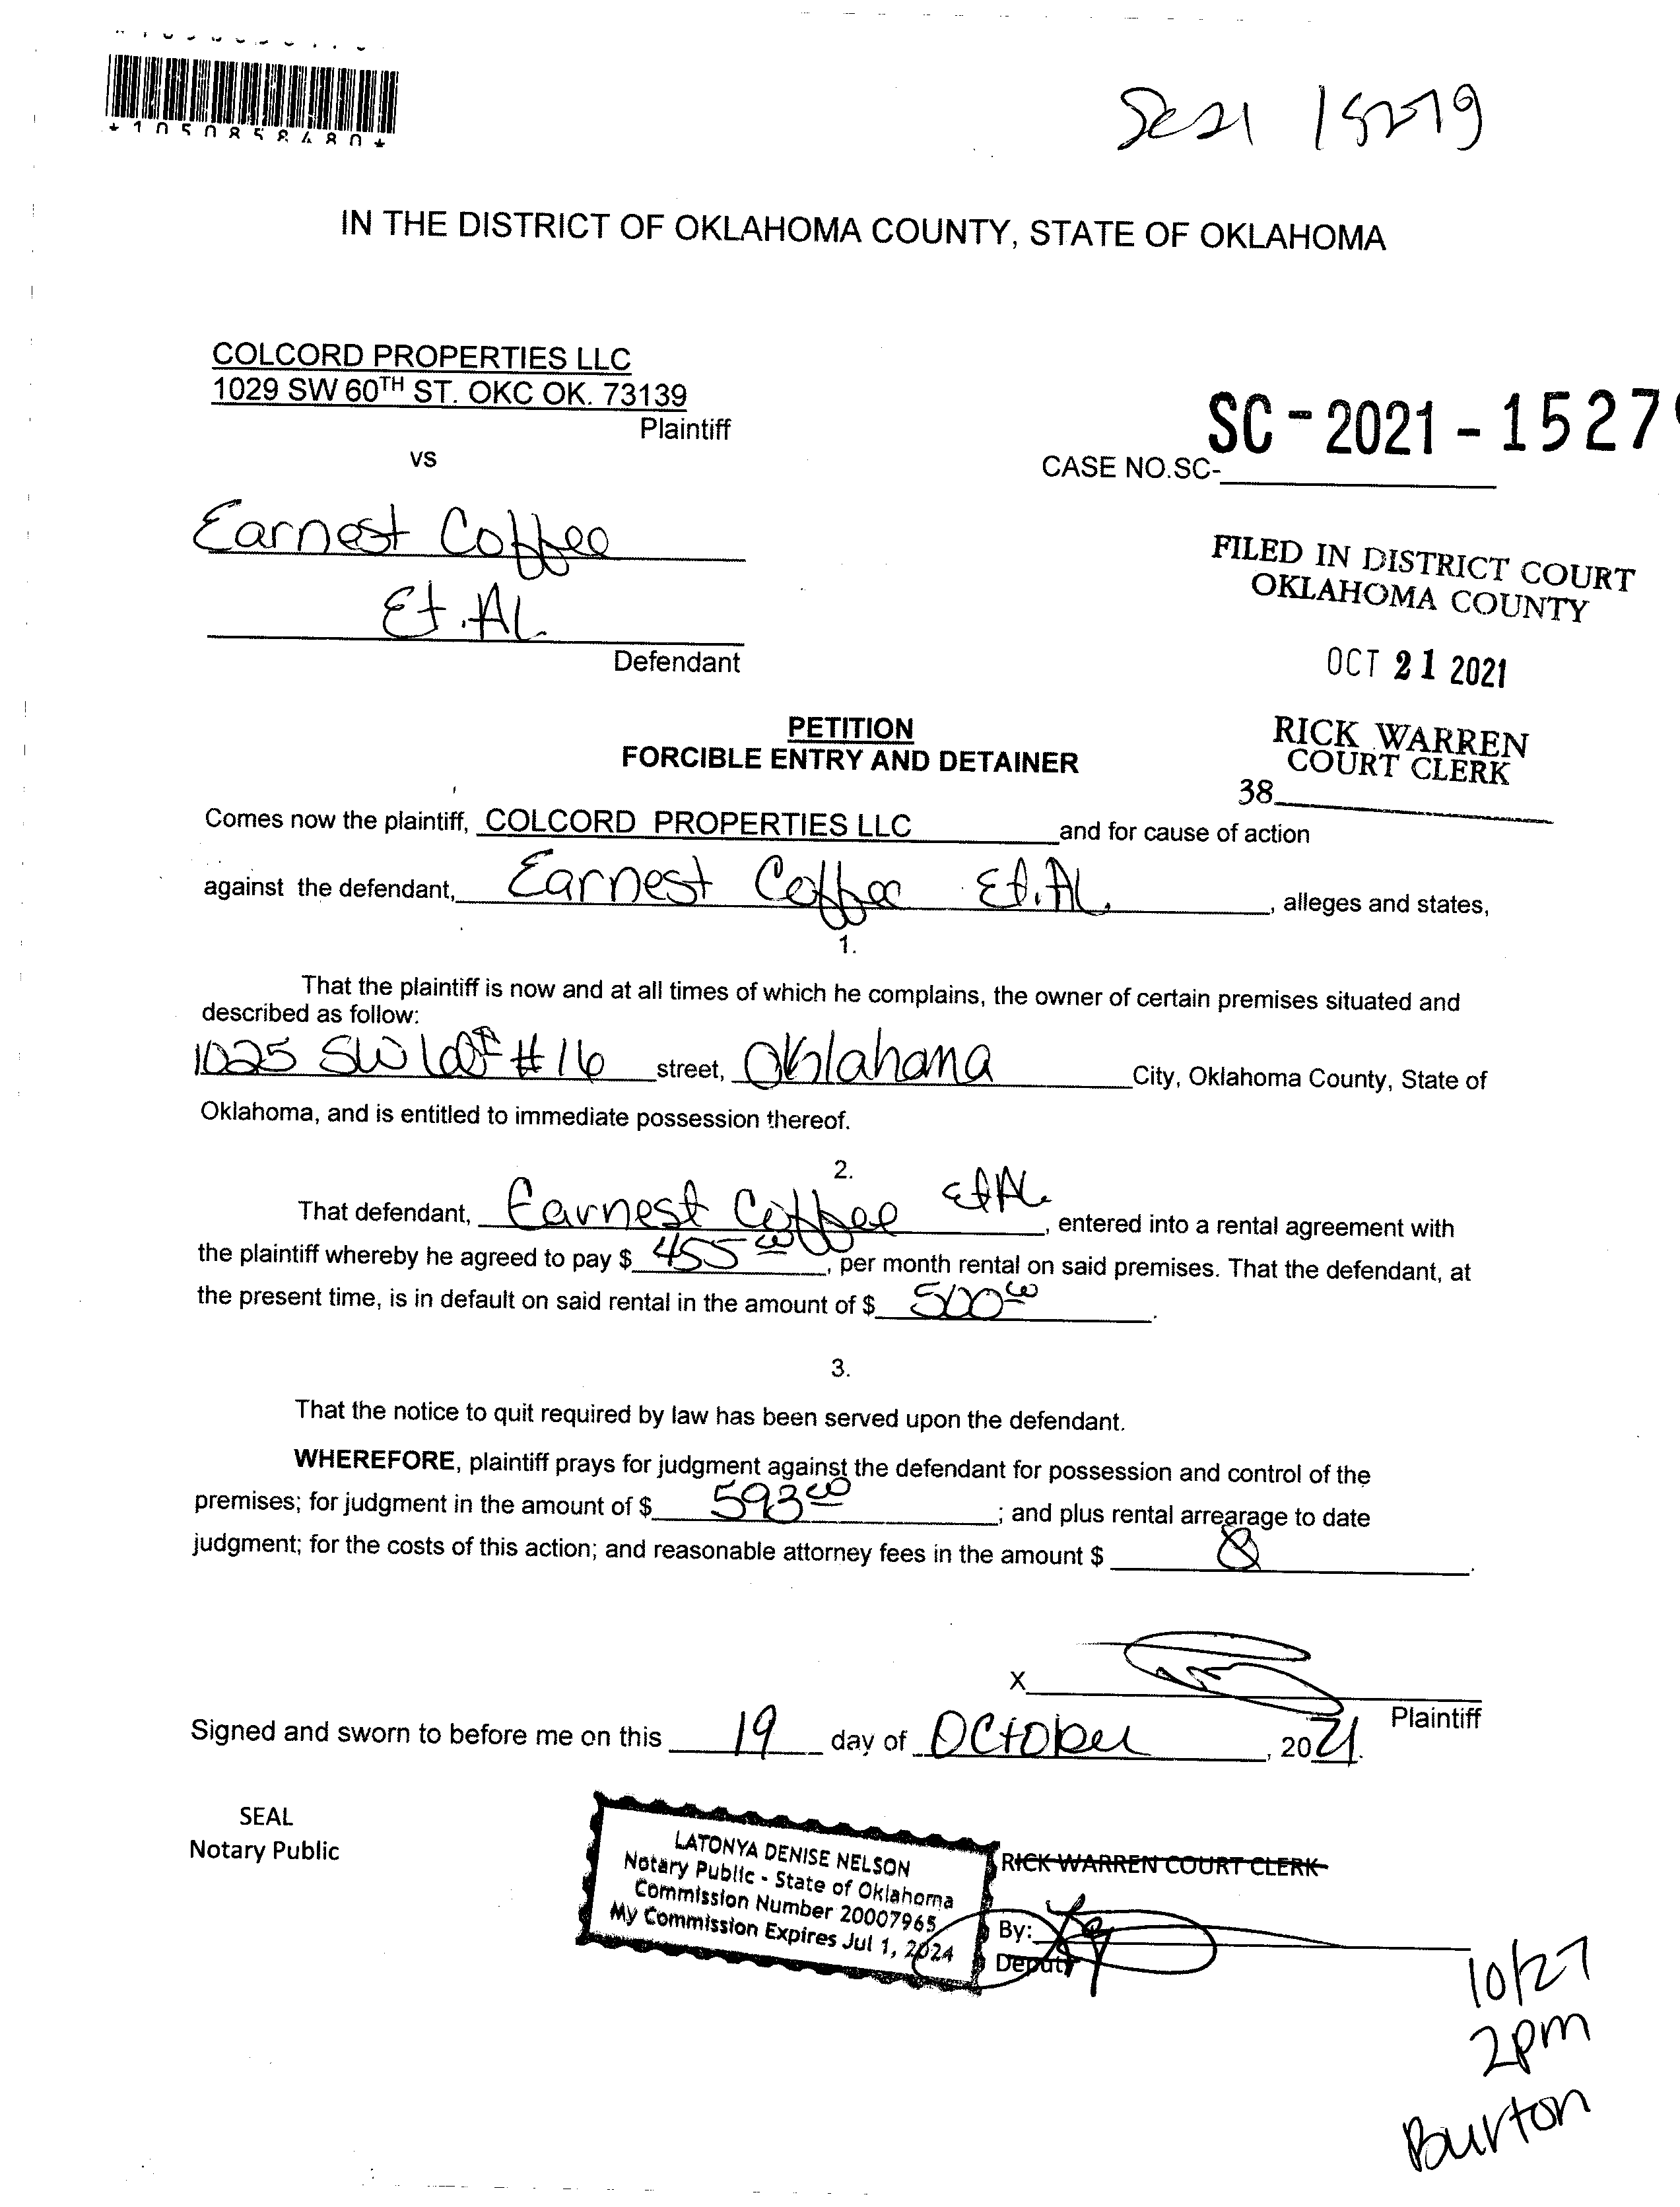 *1050858480*
SC21 15279
IN THE DISTRICT OF OKLAHOMA COUNTY, STATE OF OKLAHOMA
COLCORD PROPERTIES LLC
1029 SW 60TH ST. OKC OK. 73139
Plaintiff
vs
SC-2021-1527
CASE NO.SC-
Earnest Coffee
Et.Al.
Defendant
FILED IN DISTRICT COURT
OKLAHOMA COUNTY
OCT 21 2021
RICK WARREN
COURT CLERK
38
PETITION
FORCIBLE ENTRY AND DETAINER
Comes now the plaintiff, COLCORD PROPERTIES LLC and for cause of action
against the defendant, Earnest Coffee Et.Al. , alleges and states,
1.
That the plaintiff is now and at all times of which he complains, the owner of certain premises situated and
described as follow:
1025 SW #16 street, Oklahoma City, Oklahoma County, State of
Oklahoma, and is entitled to immediate possession thereof.
2.
That defendant, Earnest Coffee Et Al. , entered into a rental agreement with
the plaintiff whereby he agreed to pay $ 455 00 , per month rental on said premises. That the defendant, at
the present time, is in default on said rental in the amount of $ 500 00 .
3.
That the notice to quit required by law has been served upon the defendant.
WHEREFORE, plaintiff prays for judgment against the defendant for possession and control of the
premises; for judgment in the amount of $ 593 00 ; and plus rental arrearage to date
judgment; for the costs of this action; and reasonable attorney fees in the amount $ .
X
Plaintiff
Signed and sworn to before me on this 19 day of October , 2021.
SEAL
Notary Public
LATONYA DENISE NELSON
Notary Public - State of Oklahoma
Commission Number 20007965
My Commission Expires Jul 1, 2024
RICK WARREN COURT CLERK
By:
Deputy
10/27
2pm
Burton